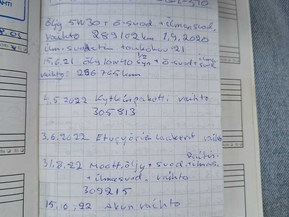 öljy 5W30 + ö-suod + ilmansuod,
vaihto 289102km 1.9.2020
toukokuu -21
15.6.21 öljy 10W40
vaihto: 296765km
4.5.2022 Kytkinpaketti vaihto
305813
3.6.2022 Etupyörän laakerit
31.8.22 Moott.öljy + suod.
+ ilmasuod. vaihto
309215
15.10.22 Akun vaihto